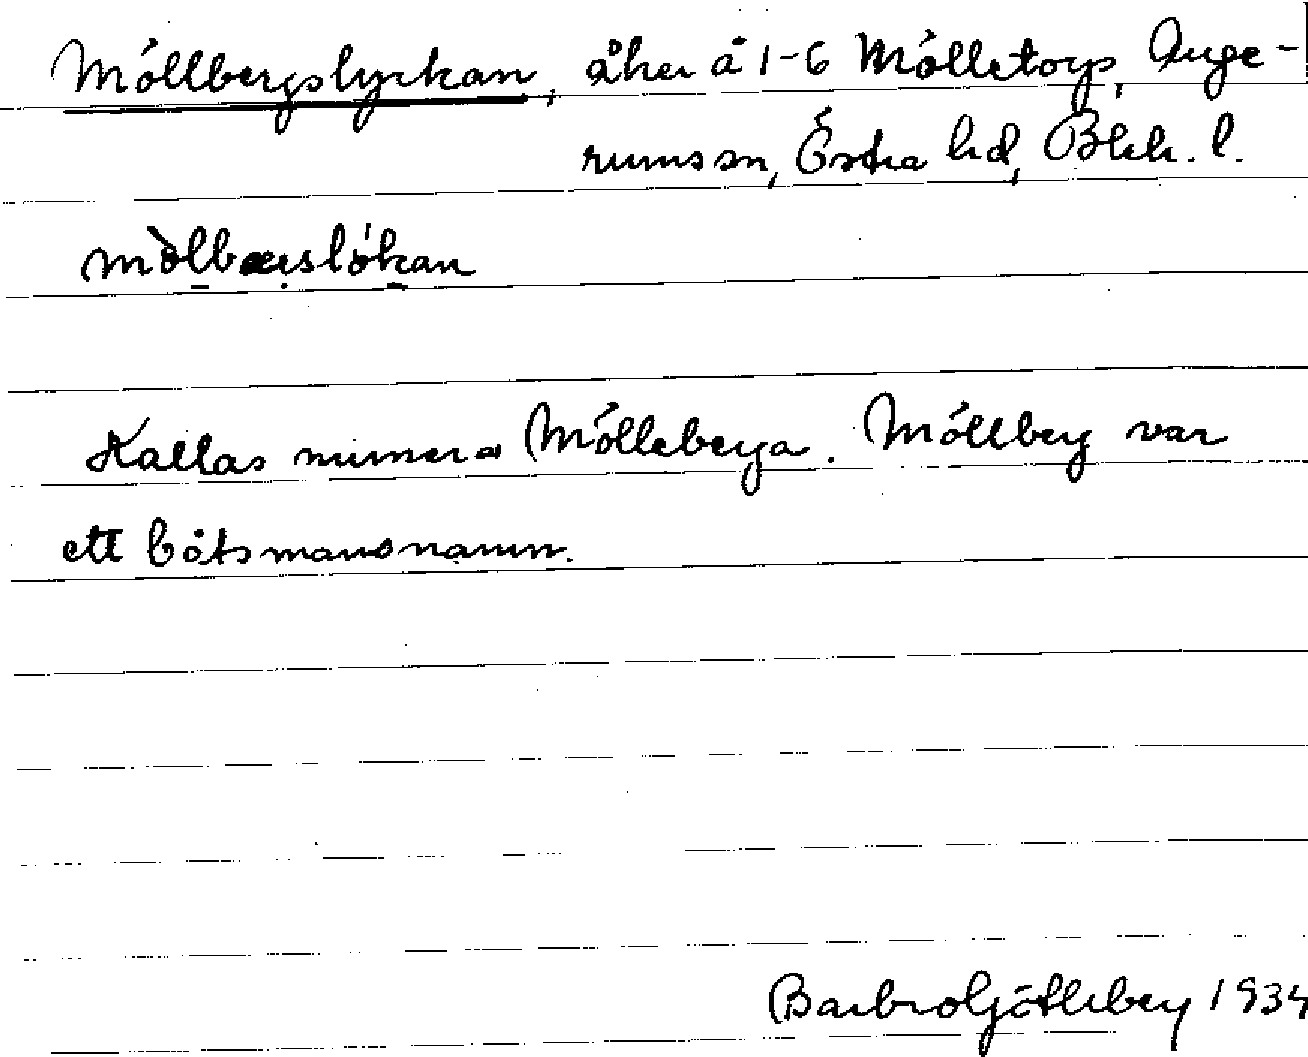 Möllbergslyckan, åker å 1-6 Mölletorp, Auge-
rums sn, Östra hd, Blek. l.
mòlbærslókan
Kallas numera Mölleberga. Möllberg var
ett båtsmansnamn.
Barbro Götleberg 1934